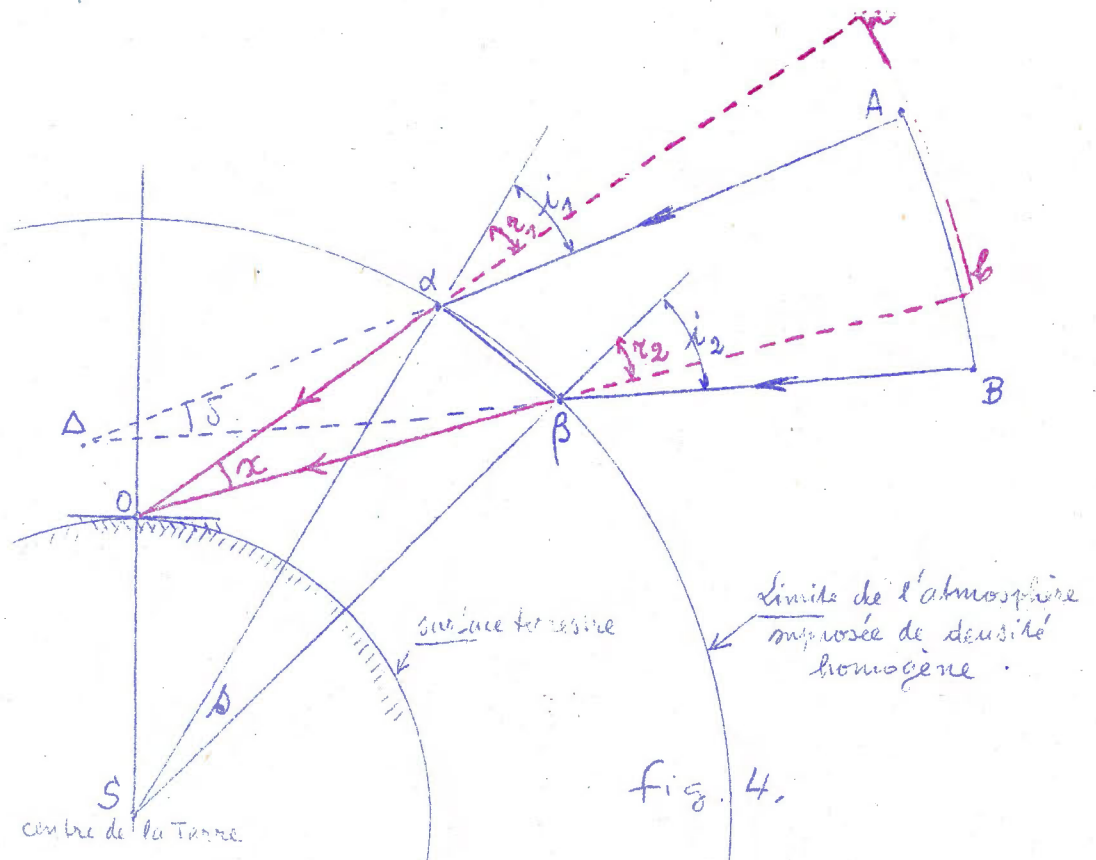 A
i₁
r₁
α
i₂
r₂
b
B
Δ
δ
β
x
O
surface terrestre
Limite de l'atmosphère
supposée de densité
homogène.
s
S
centre de la Terre
fig. 4.